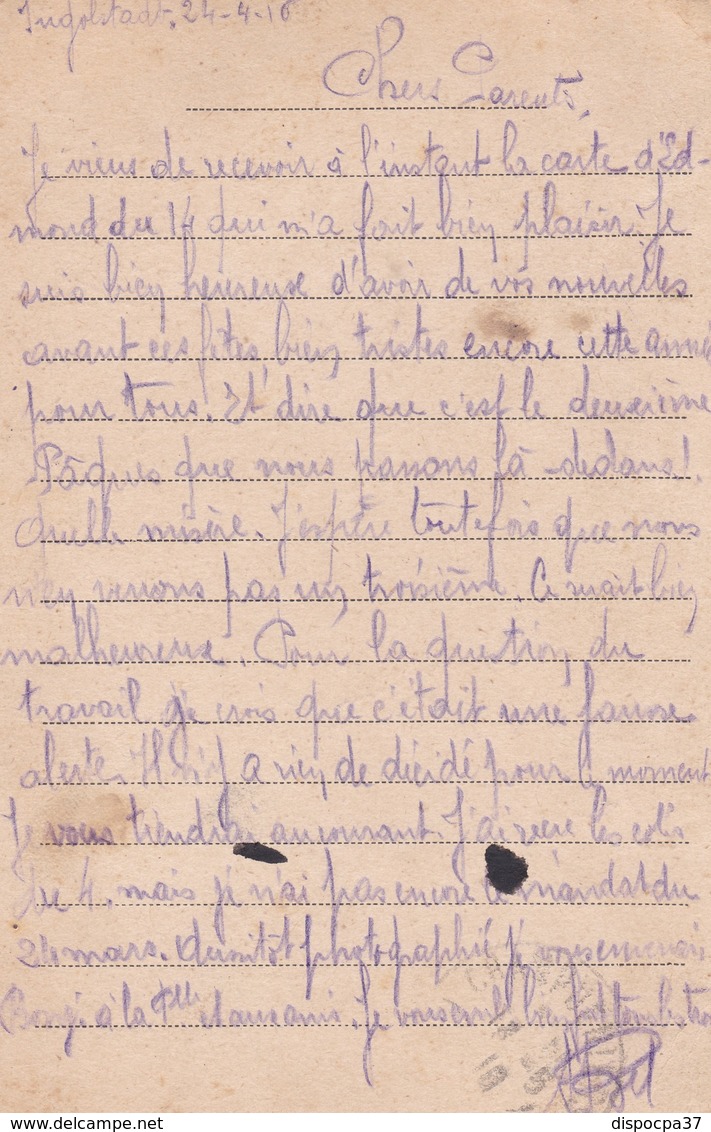 Ingolstadt, 24-4-16
Chers Parents,
Je viens de recevoir à l'instant la carte d'Ed-
mond du 14 qui m'a fait bien plaisir. Je
suis bien heureuse d'avoir de vos nouvelles
avant ces fêtes, bien tristes encore cette année
pour tous. Et dire que c'est le deuxième
Pâques que nous passons là-dedans!
Quelle misère. J'espère toutefois que nous
n'en verrons pas un troisième. Ce serait bien
malheureux. Pour la question du
travail je crois que c'était une fausse
alerte. Il n'y a rien de décidé pour le moment
Je vous tiendrai au courant. J'ai reçu les colis
du 4, mais je n'ai pas encore le mandat du
24 mars. photographié je vous
à la et aux amis. Je vous bien fort tous les trois
dispocpa37